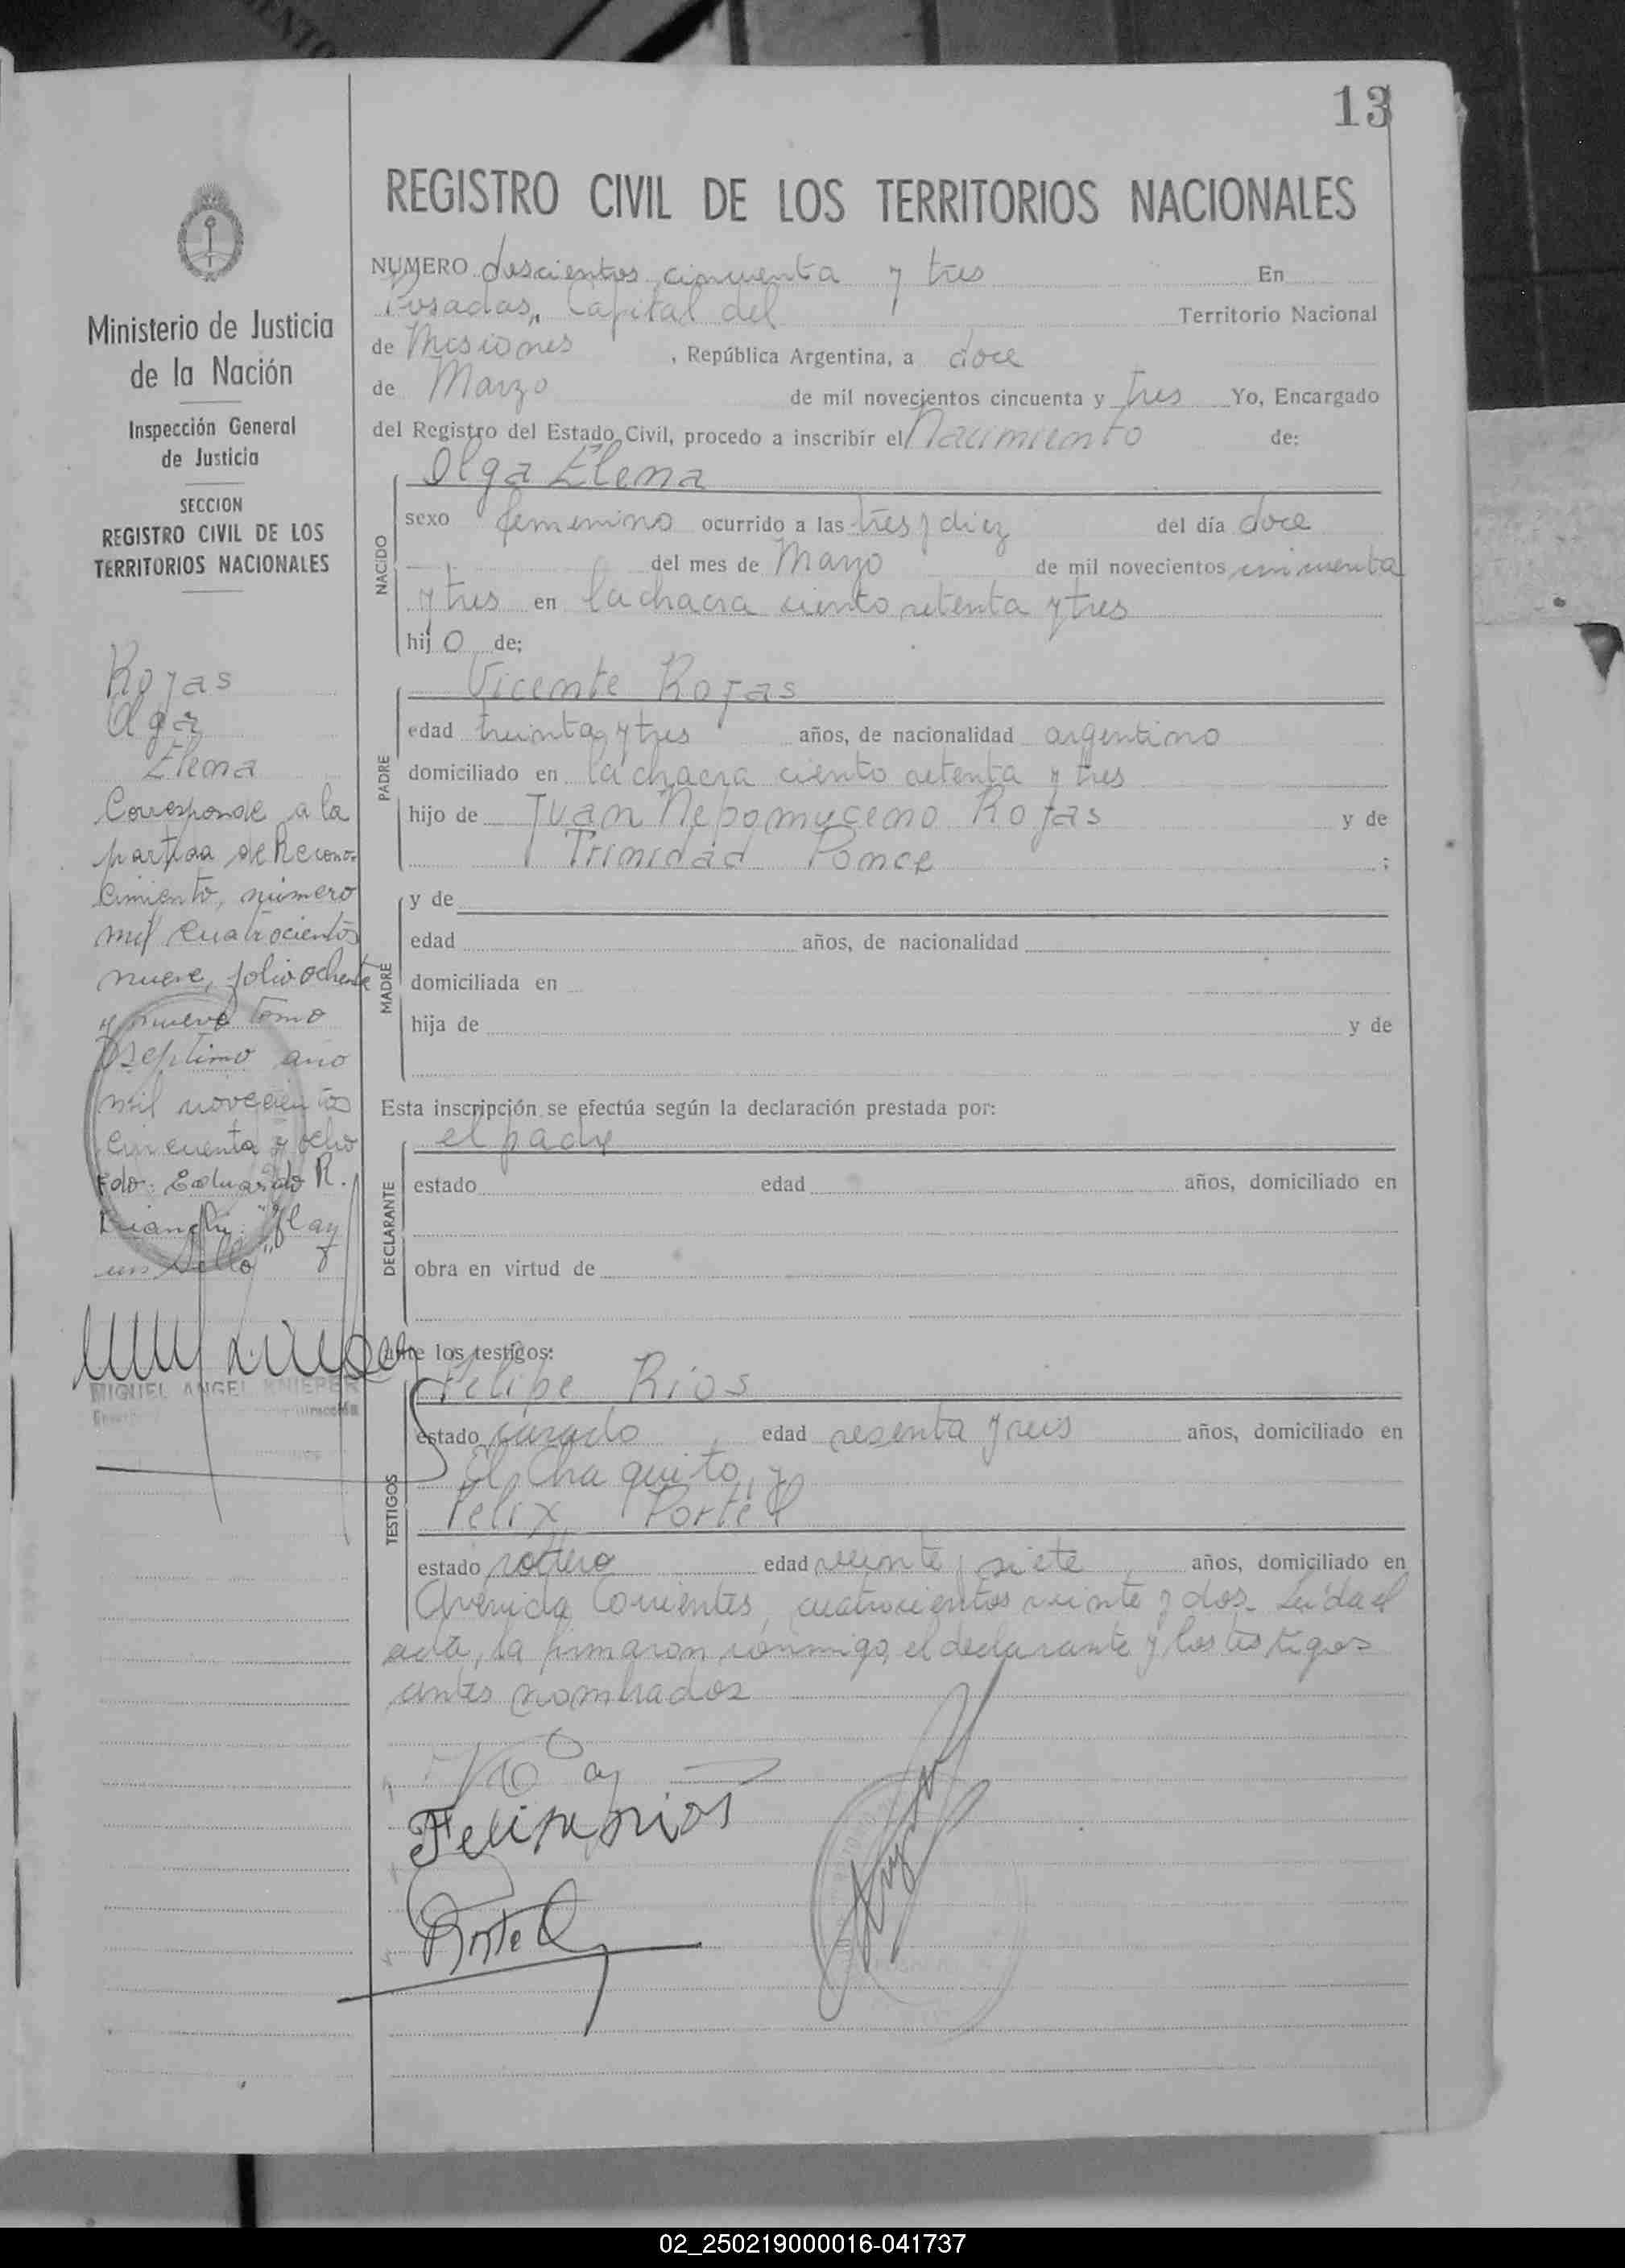 13
REGISTRO CIVIL DE LOS TERRITORIOS NACIONALES
NUMERO doscientos cincuenta y tres En
Posadas, Capital del Territorio Nacional
de Misiones, República Argentina, a doce
de Marzo de mil novecientos cincuenta y tres Yo, Encargado
del Registro del Estado Civil, procedo a inscribir el Nacimiento de:
NACIDO
Olga Elena
sexo femenino ocurrido a las tres y diez del día doce
del mes de Marzo de mil novecientos cincuenta
y tres en la chacra ciento setenta y tres
hijo de;
PADRE
Vicente Rojas
edad treinta y tres años, de nacionalidad argentino
domiciliado en la chacra ciento setenta y tres
hijo de Juan Nepomuceno Rojas y de
Trinidad Ponce ;
MADRE
y de
edad años, de nacionalidad
domiciliada en
hija de y de
Esta inscripción se efectúa según la declaración prestada por:
DECLARANTE
el padre
estado edad años, domiciliado en
obra en virtud de
ante los testigos:
TESTIGOS
Felipe Rios
estado casado edad sesenta y seis años, domiciliado en
El Chaquito, y
Felix Portel
estado soltero edad veinte y siete años, domiciliado en
Avenida Corrientes, cuatrocientos veinte y dos. Leída el
acta, la firmaron conmigo, el declarante y los testigos
antes nombrados
Felipe Rios
Portel
Ministerio de Justicia
de la Nación
Inspección General
de Justicia
SECCION
REGISTRO CIVIL DE LOS
TERRITORIOS NACIONALES
Rojas
Olga
Elena
Corresponde a la
partida de Recono-
cimiento, número
mil cuatrocientos
nueve, folio ochenta
y nueve tomo
septimo año
mil novecientos
cincuenta y ocho
Fdo: Eduardo R.
Bianchi. "Hay
un Sello"
MIGUEL ANGEL KNIEPER
02_250219000016-041737